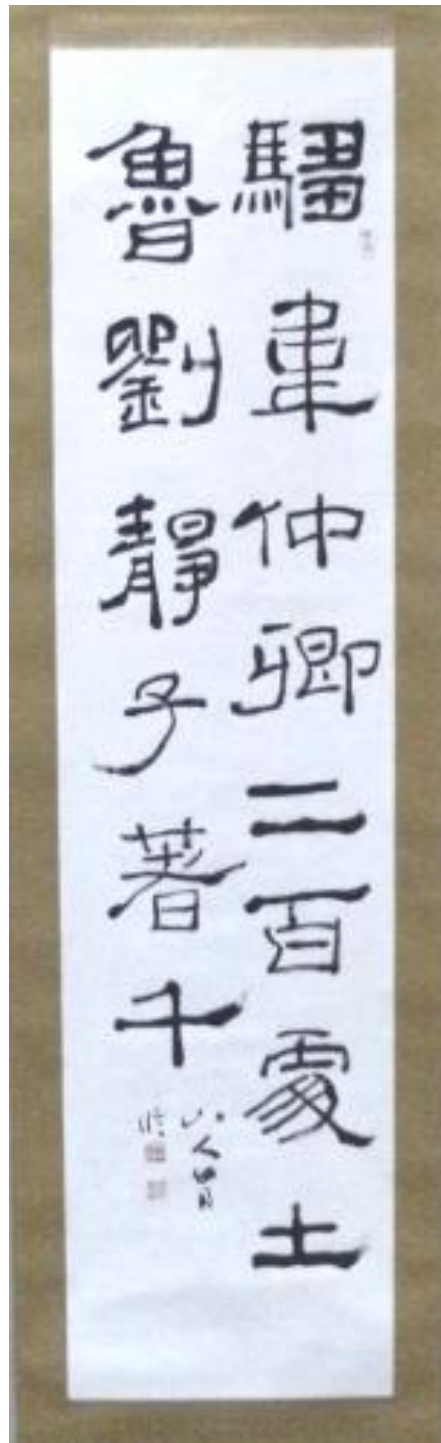 騶韋仲卿二百處士
魯劉靜子著千